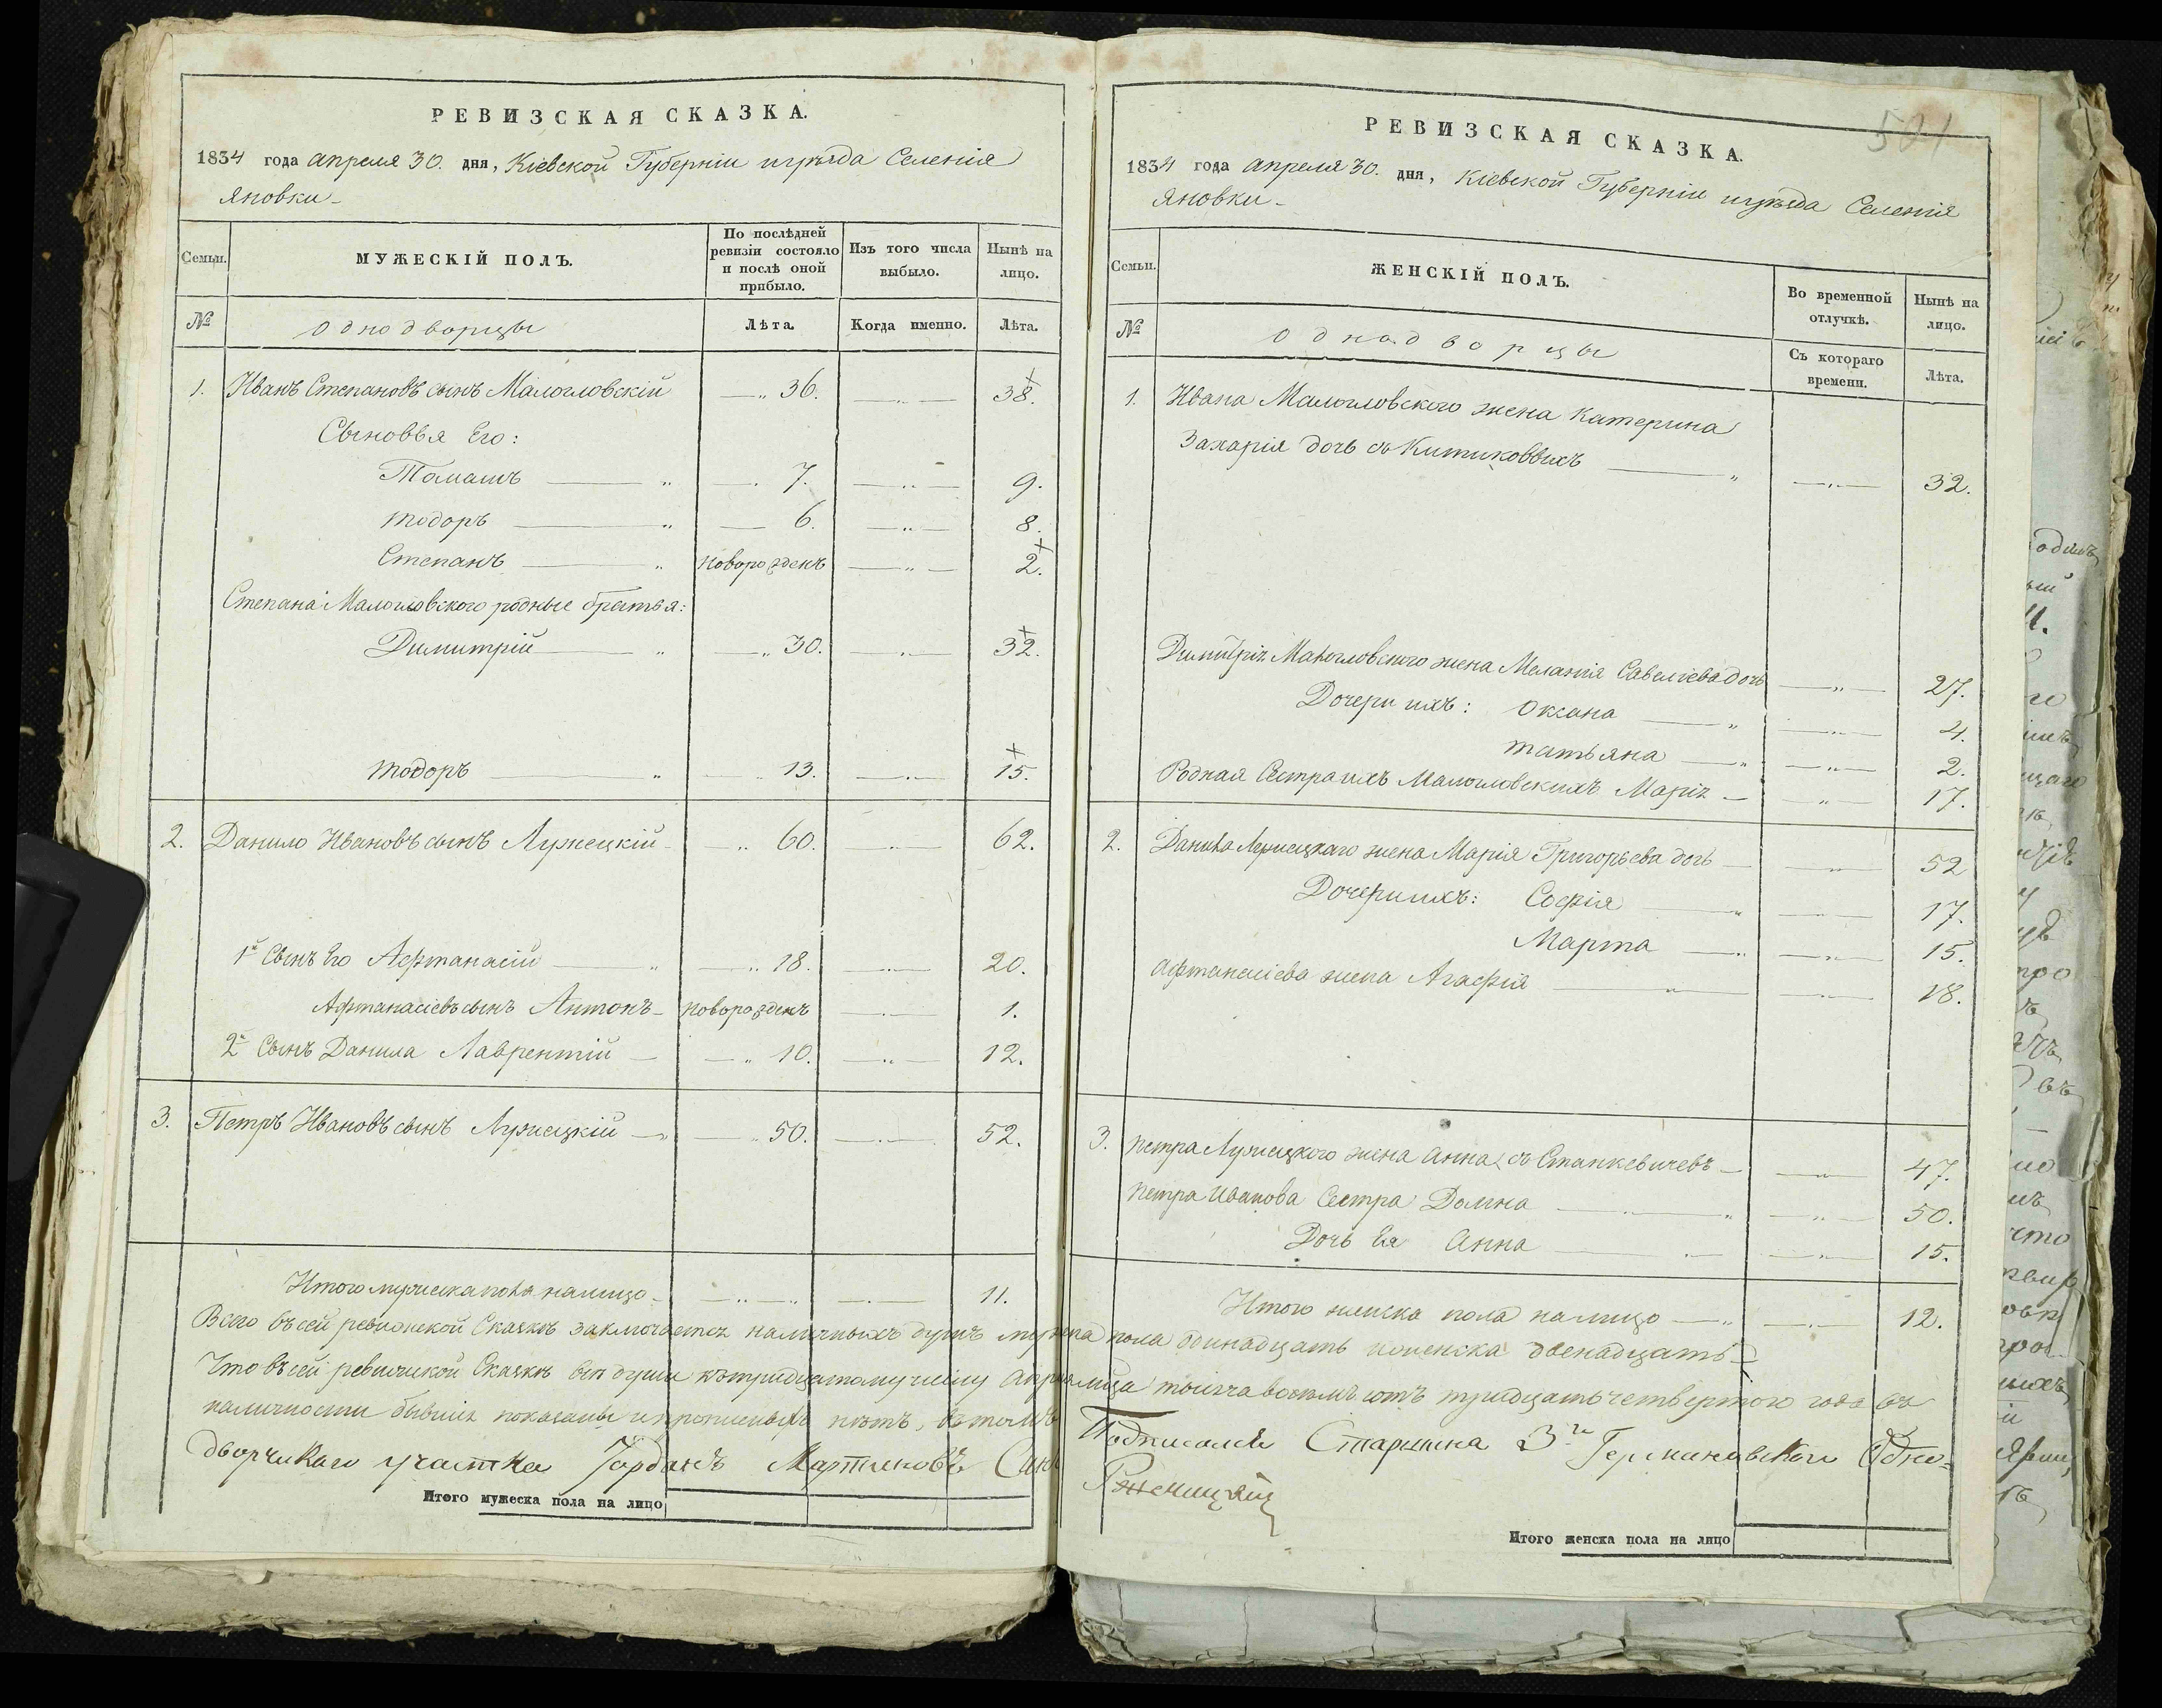 РЕВИЗСКАЯ СКАЗКА.
1834 года апреля 30. дня, Кіевской Губерніи иуѣзда Селенія
Яновки
Семьи.
МУЖЕСКІЙ ПОЛЪ.
По послѣдней ревизіи состояло и послѣ оной прибыло.
Изъ того числа выбыло.
Нынѣ на лицо.
№
Однодворцы
Лѣта.
Когда именно.
Лѣта.
1. Иванъ Степановъ сынъ Малогловскій — 36. — 38.
Сыновья Его:
Томашъ — 7. — 9.
Тодоръ — 6. — 8.
Степанъ — новорожденъ — 2.
Степана Малогловского родные братья:
Димитрій — 30. — 32.
Тодоръ — 13. — 15.
2. Данило Ивановъ сынъ Лужецкій — 60. — 62.
1й Сынъ Его Афтанасій — 18. — 20.
Афтанасіевъ сынъ Антонъ — новорожденъ — 1.
2й Сынъ Данила Лаврентій — 10. — 12.
3. Петръ Ивановъ сынъ Лужецкій — 50. — 52.
Итого мужеска пола налицо — 11.
501
РЕВИЗСКАЯ СКАЗКА.
1834 года апреля 30. дня, Кіевской Губерніи иуѣзда Селенія
Яновки
Семьи.
ЖЕНСКІЙ ПОЛЪ.
Во временной отлучкѣ.
Нынѣ на лицо.
№
Однадворцы
Съ котораго времени.
Лѣта.
1. Ивана Малогловского жена Катерина
Захарія дочь съ Китиковвихъ — 32.
Димитрія Малогловского жена Меланія Савеліева дочь — 27.
Дочери ихъ: Оксана — 4.
Татьяна — 2.
Родная Сестра ихъ Малогловскихъ Марія — 17.
2. Данила Лужецкаго жена Марія Григорьева дочь — 52
Дочери ихъ: Софія — 17.
Марта — 15.
Афтанасіева жена Агафія — 18.
3. Петра Лужецкого жена Анна съ Станкевичевъ — 47.
Петра Иванова Сестра Домна — 50.
Дочь Ея Анна — 15.
Итого женска пола налицо — 12.
Всего въ сей ревизской Сказкѣ заключается наличныхъ душъ мужеска пола одинадцать иженска двенадцать
Что въ сей ревизской Сказкѣ всѣ души къ тридцатому числу Апреля тысяча восемъ сотъ тридцать четвертого года въ
наличности бывшія показаны и прописныхъ нѣтъ, въ томъ Подписался Старшина 3го Германовского Одно-
дворчикаго участка Іорданъ Мартиновъ Синъ
Итого мужеска пола на лицо
Итого женска пола на лицо